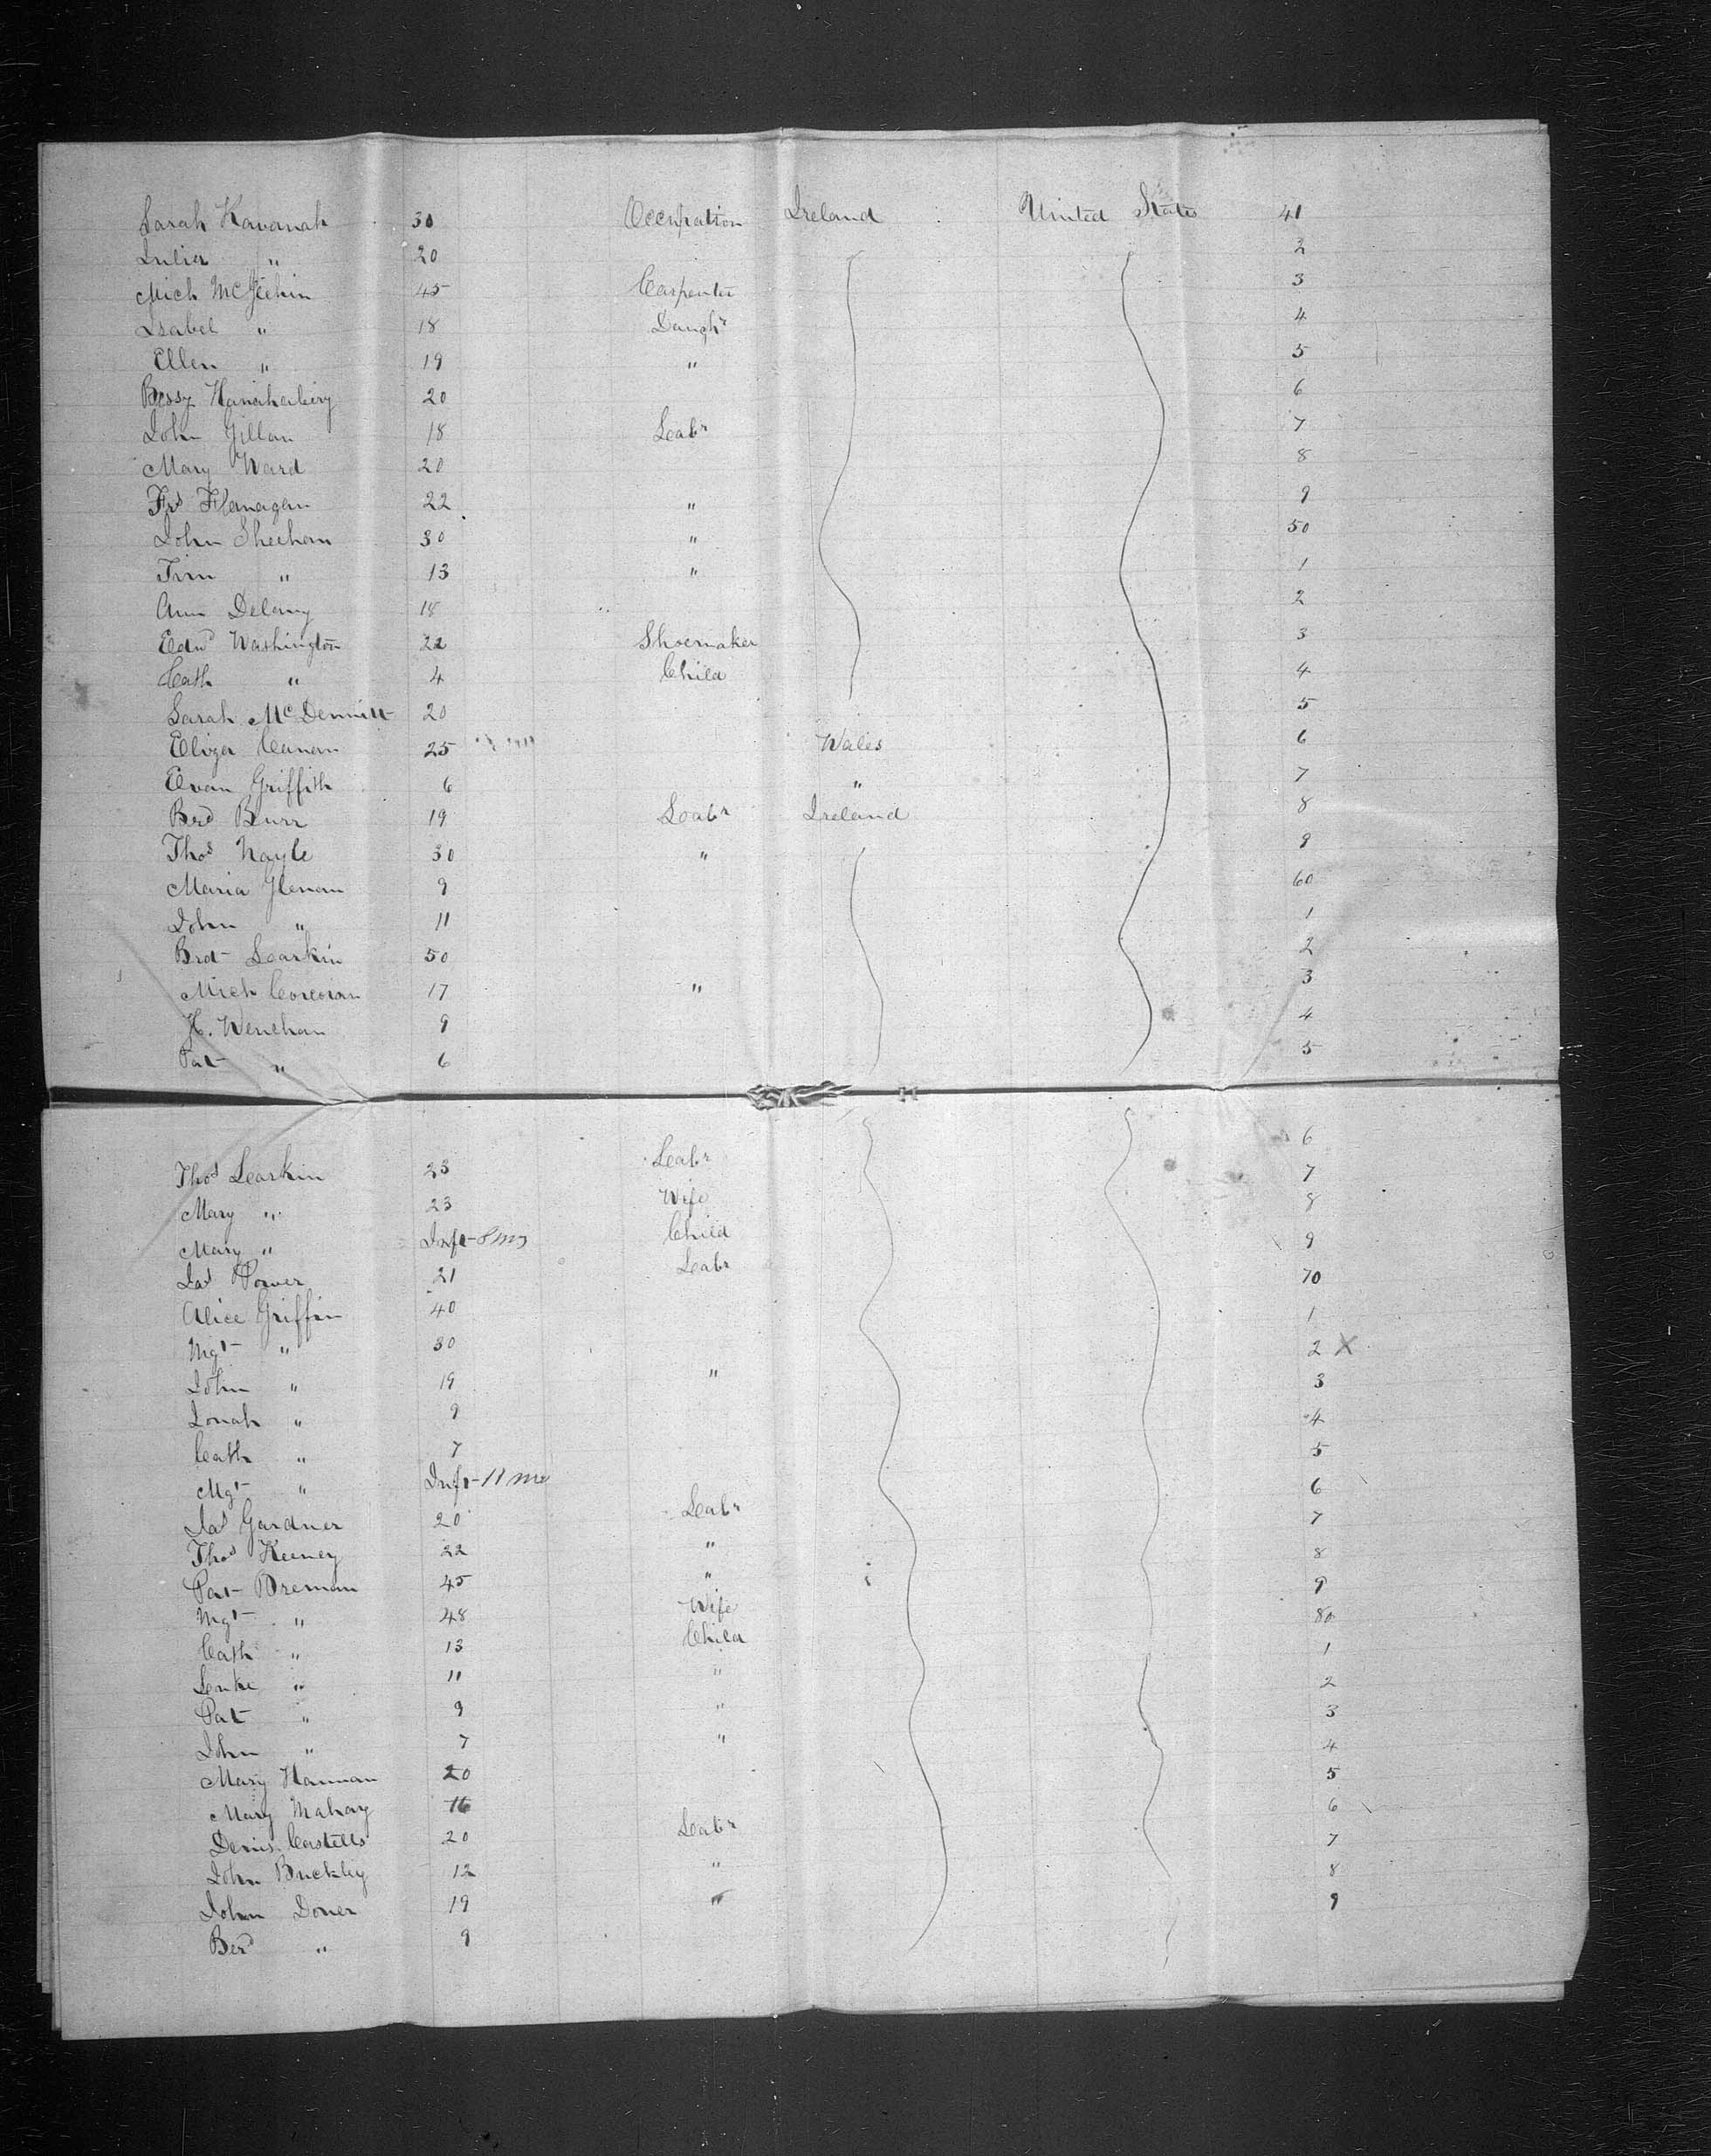 Sarah Kavanah 30 Occupation Ireland United States 41
Julia " 20 2
Mich McGeehin 45 Carpenter 3
Isabel " 18 Daughr 4
Ellen " 19 " 5
Bessy 20 6
John Gillan 18 Labr 7
Mary Ward 20 8
Frs Flanagan 22 " 9
John Sheehan 30 " 50
Tim " 13 " 1
Ann Delany 18 2
Edwd Washington 22 Shoemaker 3
Cath " 4 Child 4
Sarah McDermitt 20 5
Eliza Canan 25 Wales 6
Evan Griffith 6 " 7
Berd Burr 19 Labr Ireland 8
Thos Nayle 30 " 9
Maria Glenan 9 60
John " 11 1
Brdt Larkin 50 2
Mich Corcoran 17 " 3
H. Wenehan 9 4
Pat " 6 5
Thos Larkin 23 Labr 6
Mary " 23 Wife 7
Mary " Inft 8 mos Child 8
Jas Power 21 Labr 9
Alice Griffin 40 70
Mgt " 30 1
John " 19 " 2 X
Jonah " 9 3
Cath " 7 4
Mgt " Inft 11 mo 5
Jas Gardner 20 Labr 6
Thos Keeney 22 " 7
Pat Brennan 45 " 8
Mgt " 48 Wife 9
Cath " 13 Child 80
Luke " 11 " 1
Pat " 9 " 2
John " 7 " 3
Mary Hannan 20 4
Mary Mahay 16 5
Denis Castells 20 Labr 6
John Buckley 12 " 7
John Doner 19 " 8
Berd " 9 9